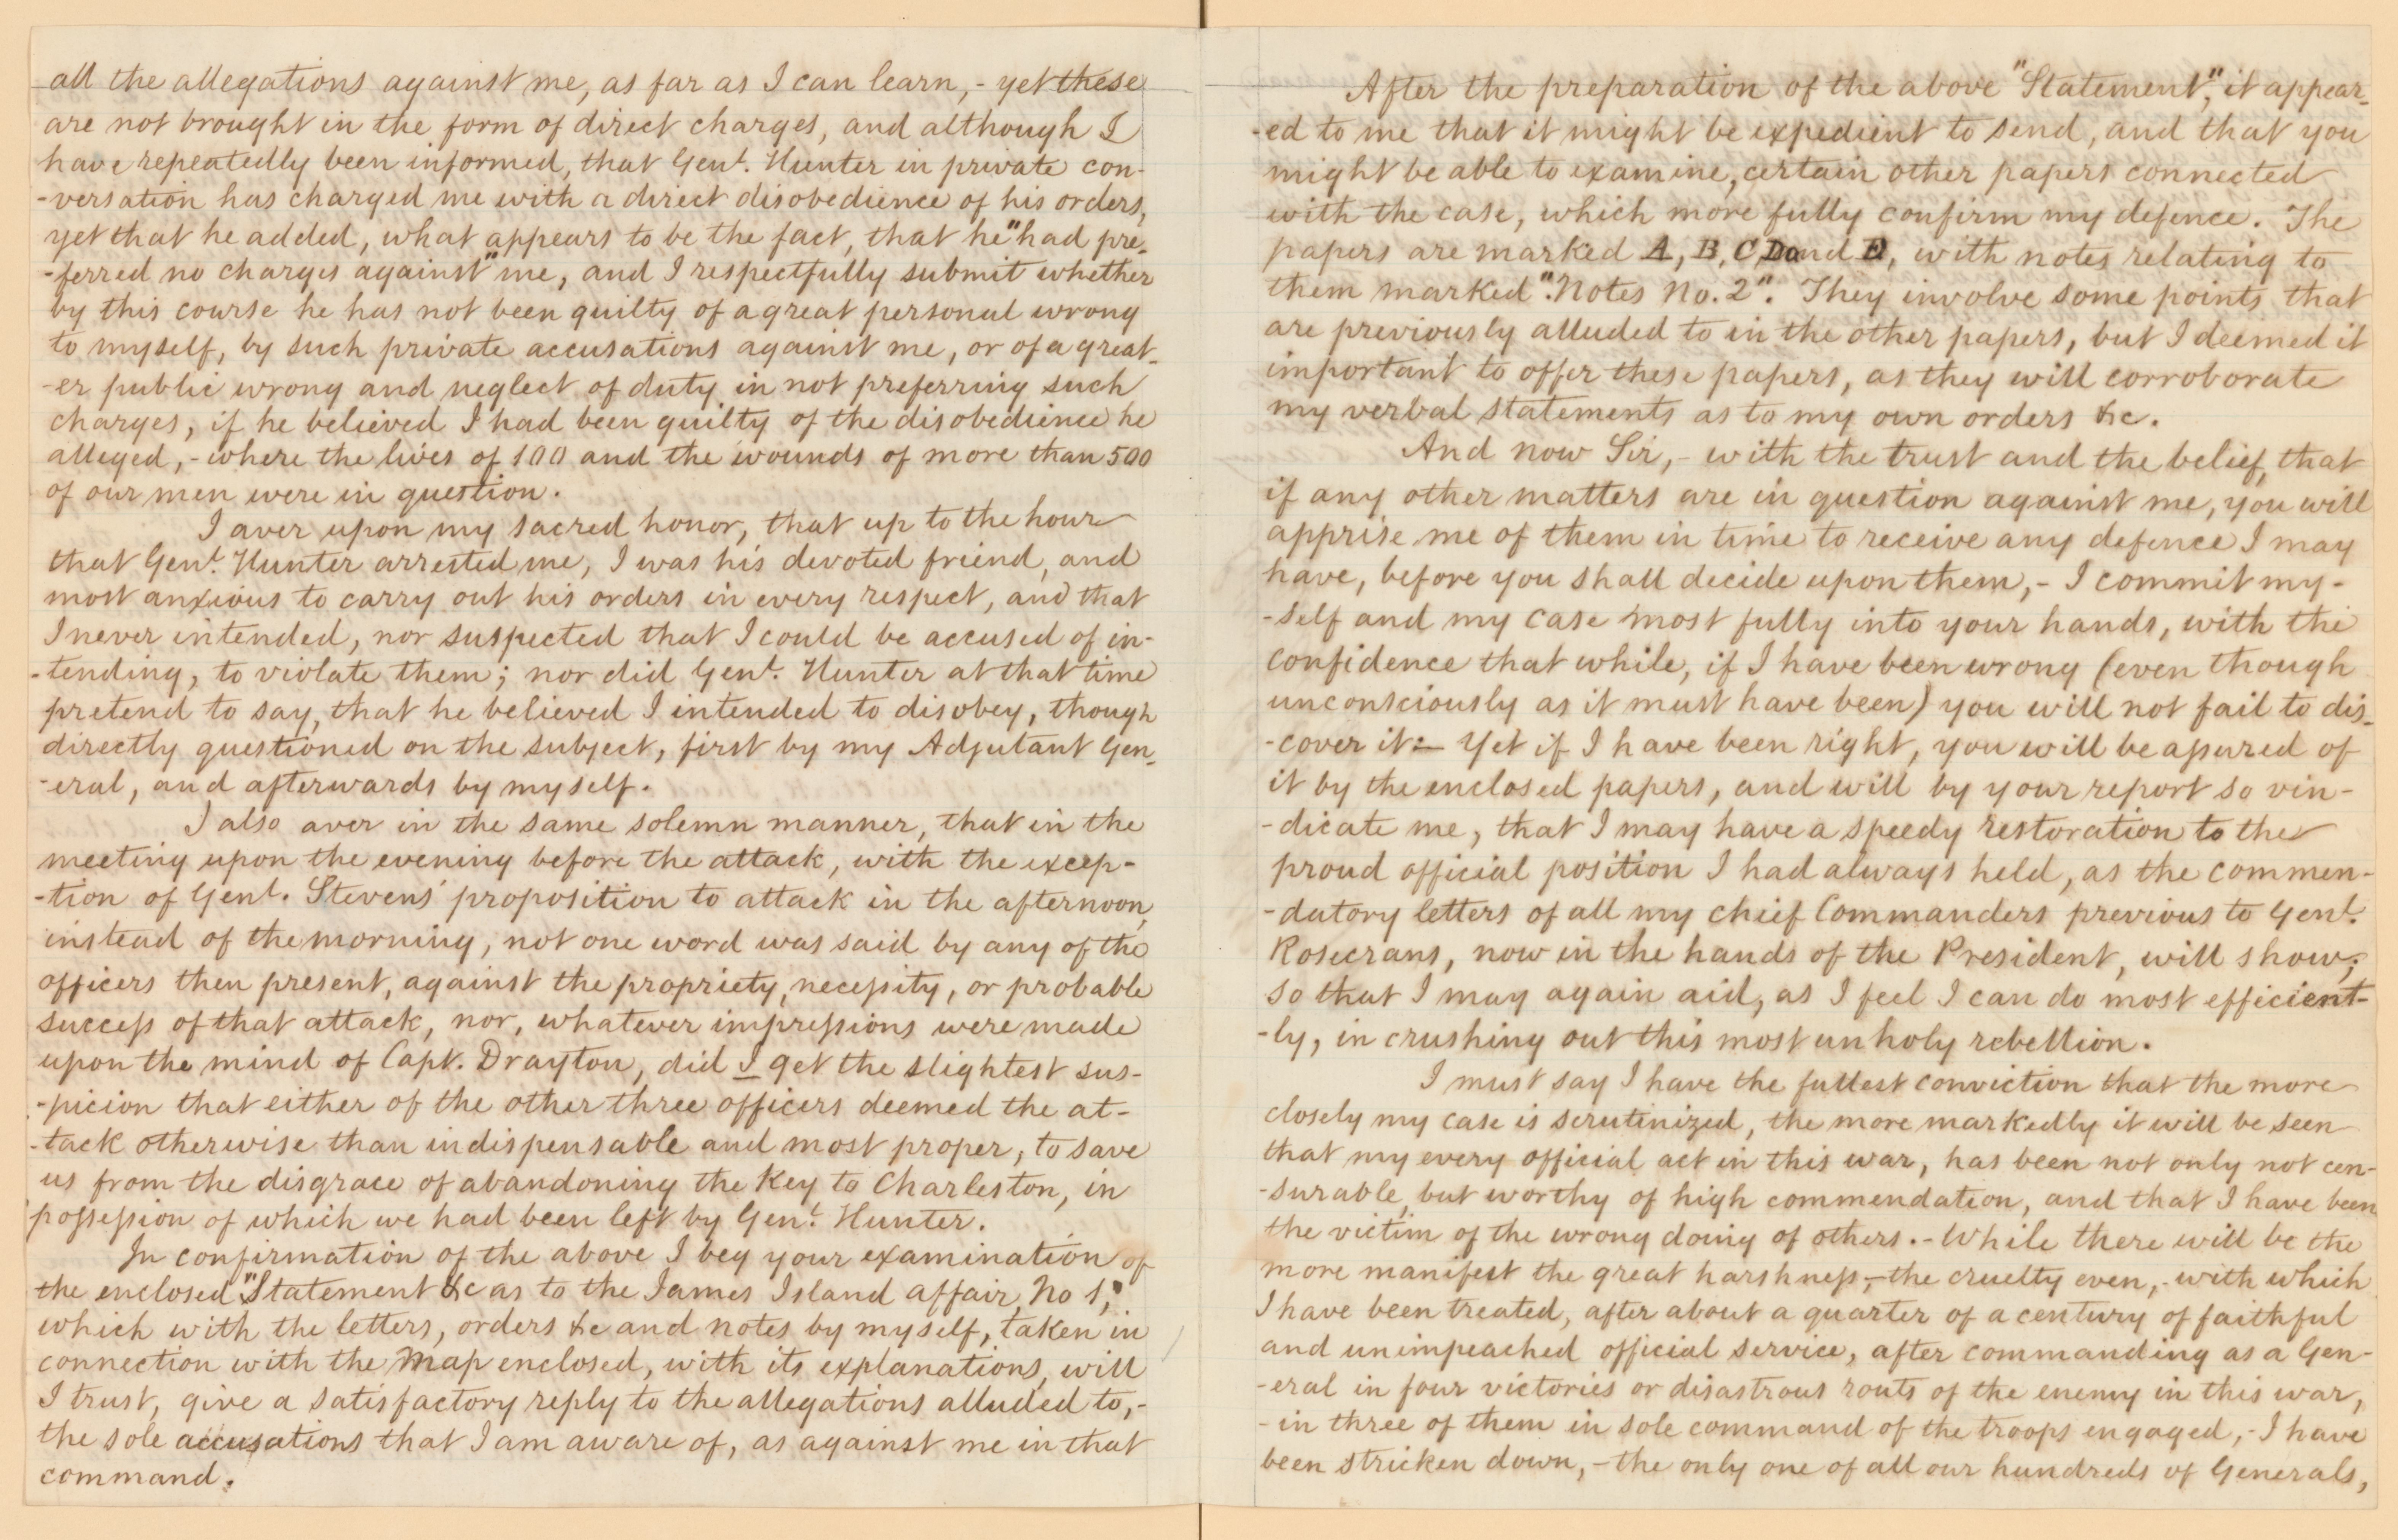 all the allegations against me, as far as I can learn,- yet these
are not brought in the form of direct charges, and although I
have repeatedly been informed, that Genl. Hunter in private con-
-versation has charged me with a direct disobedience of his orders,
yet that he added, what appears to be the fact, that he "had pre-
-ferred no charges against" me, and I respectfully submit whether
by this course he has not been guilty of a great personal wrong
to myself, by such private accusations against me, or of a great-
-er public wrong and neglect of duty in not preferring such
charges, if he believed I had been guilty of the disobedience he
alleged,- where the lives of 100 and the wounds of more than 500
of our men were in question.
I aver upon my sacred honor, that up to the hour
that Genl. Hunter arrested me, I was his devoted friend, and
most anxious to carry out his orders in every respect, and that
I never intended, nor suspected that I could be accused of in-
-tending, to violate them; nor did Genl. Hunter at that time
pretend to say, that he believed I intended to disobey, though
directly questioned on the subject, first by my Adjutant Gen-
-eral, and afterwards by myself.
I also aver in the same solemn manner, that in the
meeting upon the evening before the attack, with the excep-
-tion of Genl. Stevens' proposition to attack in the afternoon,
instead of the morning, not one word was said by any of the
officers then present, against the propriety, necessity, or probable
success of that attack, nor, whatever impressions were made
upon the mind of Capt. Drayton, did I get the slightest sus-
-picion that either of the other three officers deemed the at-
-tack otherwise than indispensable and most proper, to save
us from the disgrace of abandoning the Key to Charleston, in
possession of which we had been left by Genl. Hunter.
In confirmation of the above I beg your examination of
the enclosed "Statement &c as to the James Island affair, No 1,"
which with the letters, orders &c and notes by myself, taken in
connection with the Map enclosed, with its explanations, will
I trust, give a satisfactory reply to the allegations alluded to,-
the sole accusations that I am aware of, as against me in that
command.
After the preparation of the above "Statement", it appear-
-ed to me that it might be expedient to send, and that you
might be able to examine, certain other papers connected
with the case, which more fully confirm my defence. The
papers are marked A, B, C D and E, with notes relating to
them marked "Notes No. 2". They involve some points that
are previously alluded to in the other papers, but I deemed it
important to offer these papers, as they will corroborate
my verbal statements as to my own orders &c.
And now Sir,- with the trust and the belief, that
if any other matters are in question against me, you will
apprise me of them in time to receive any defence I may
have, before you shall decide upon them,- I commit my-
-self and my case most fully into your hands, with the
confidence that while, if I have been wrong (even though
unconsciously as it must have been) you will not fail to dis-
-cover it:- Yet if I have been right, you will be assured of
it by the enclosed papers, and will by your report so vin-
-dicate me, that I may have a speedy restoration to the
proud official position I had always held, as the commen-
-datory letters of all my chief Commanders previous to Genl.
Rosecrans, now in the hands of the President, will show;
so that I may again aid, as I feel I can do most efficient-
-ly, in crushing out this most unholy rebellion.
I must say I have the fullest conviction that the more
closely my case is scrutinized, the more markedly it will be seen
that my every official act in this war, has been not only not cen-
-surable, but worthy of high commendation, and that I have been
the victim of the wrong doing of others.- While there will be the
more manifest the great harshness,- the cruelty even,- with which
I have been treated, after about a quarter of a century of faithful
and unimpeached official service, after commanding as a Gen-
-eral in four victories or disastrous routs of the enemy in this war,
- in three of them in sole command of the troops engaged,- I have
been stricken down,- the only one of all our hundreds of Generals,